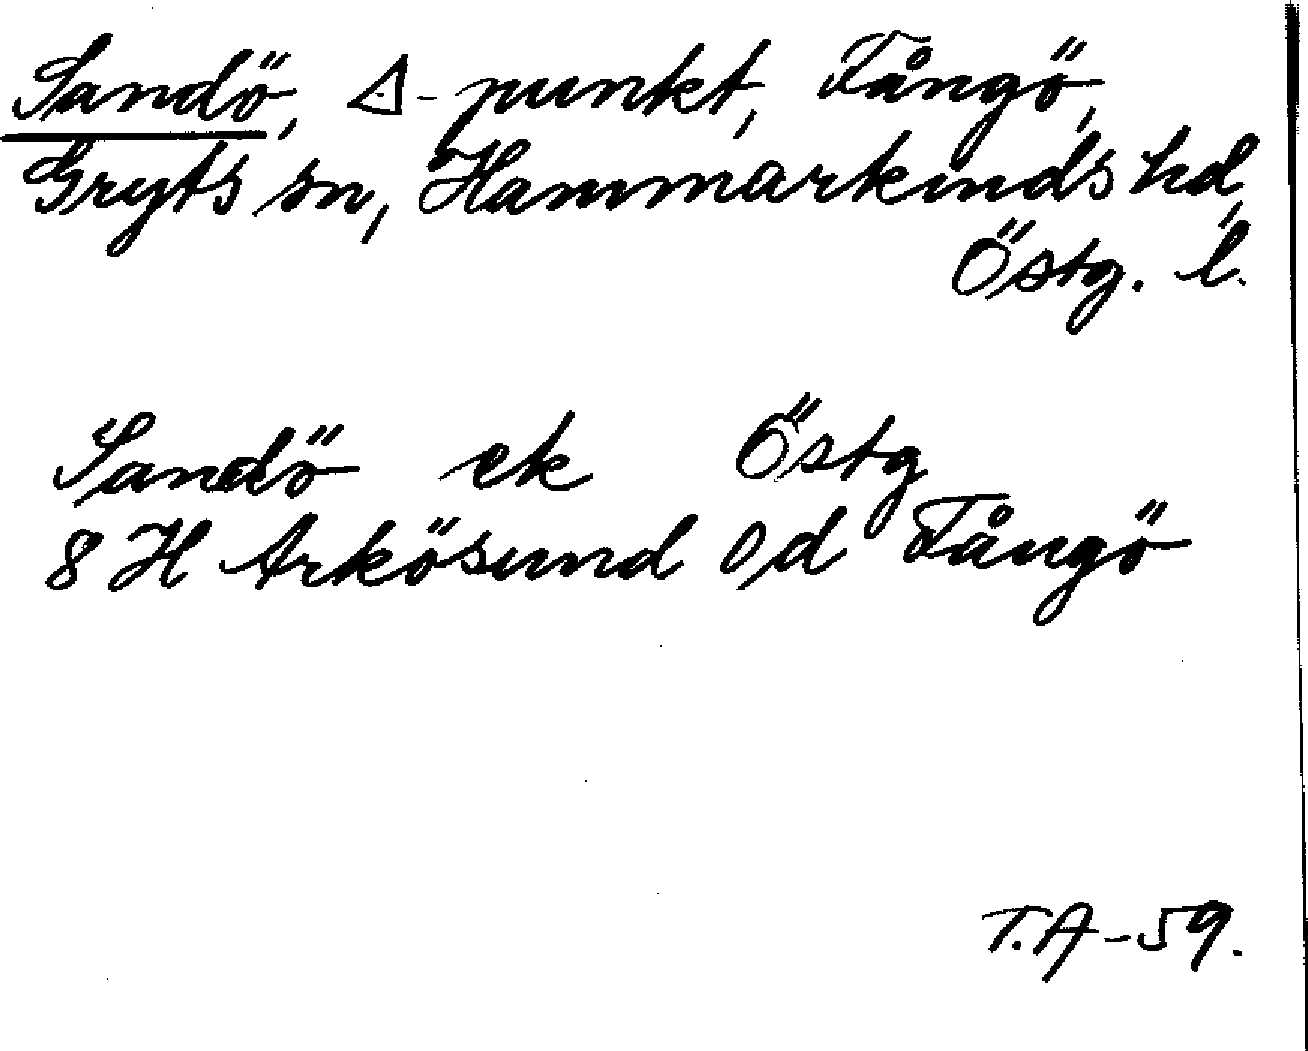 Sandö, Δ-punkt, Fångö,
Gryts sn, Hammarkinds hd,
Östg. l.
Sandö ek Östg
8 H Arkösund 0,d Fångö
T.A-59.